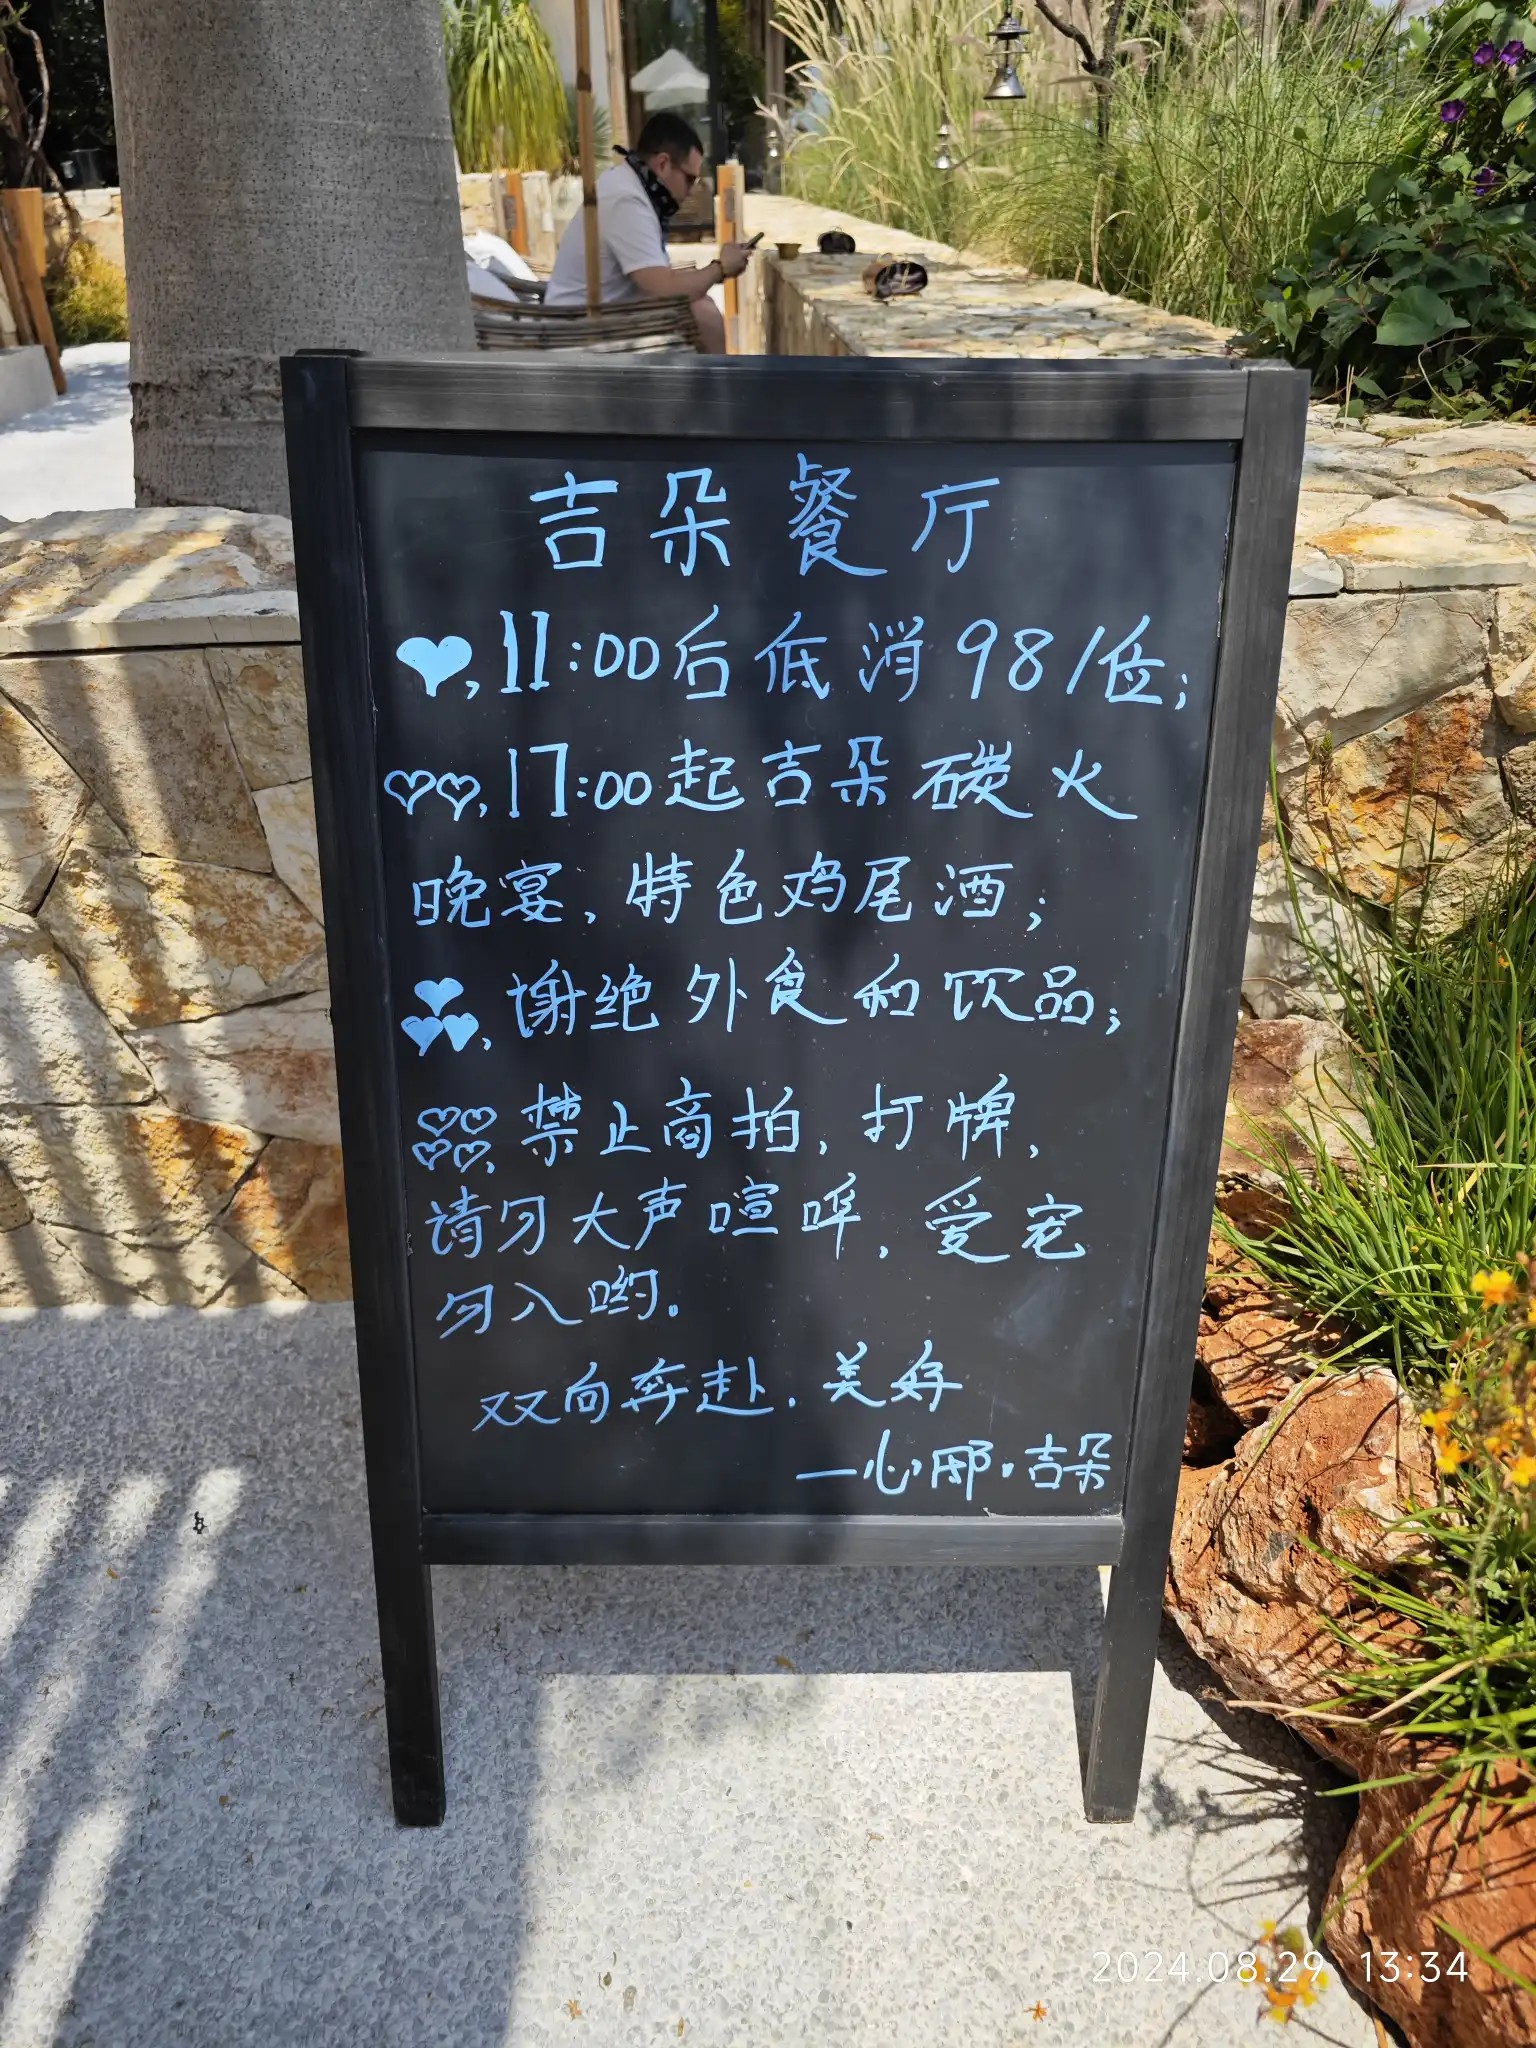 吉朵餐厅
♥,11:00后低消98/位;
♡♡,17:00起吉朵碳火
晚宴,特色鸡尾酒;
♥♥♥,谢绝外食和饮品;
♡♡♡♡,禁止商拍,打牌,
请勿大声喧哗,爱宠
勿入哟。
双向奔赴.美好
—心邸·吉朵
2024.08.29 13:34